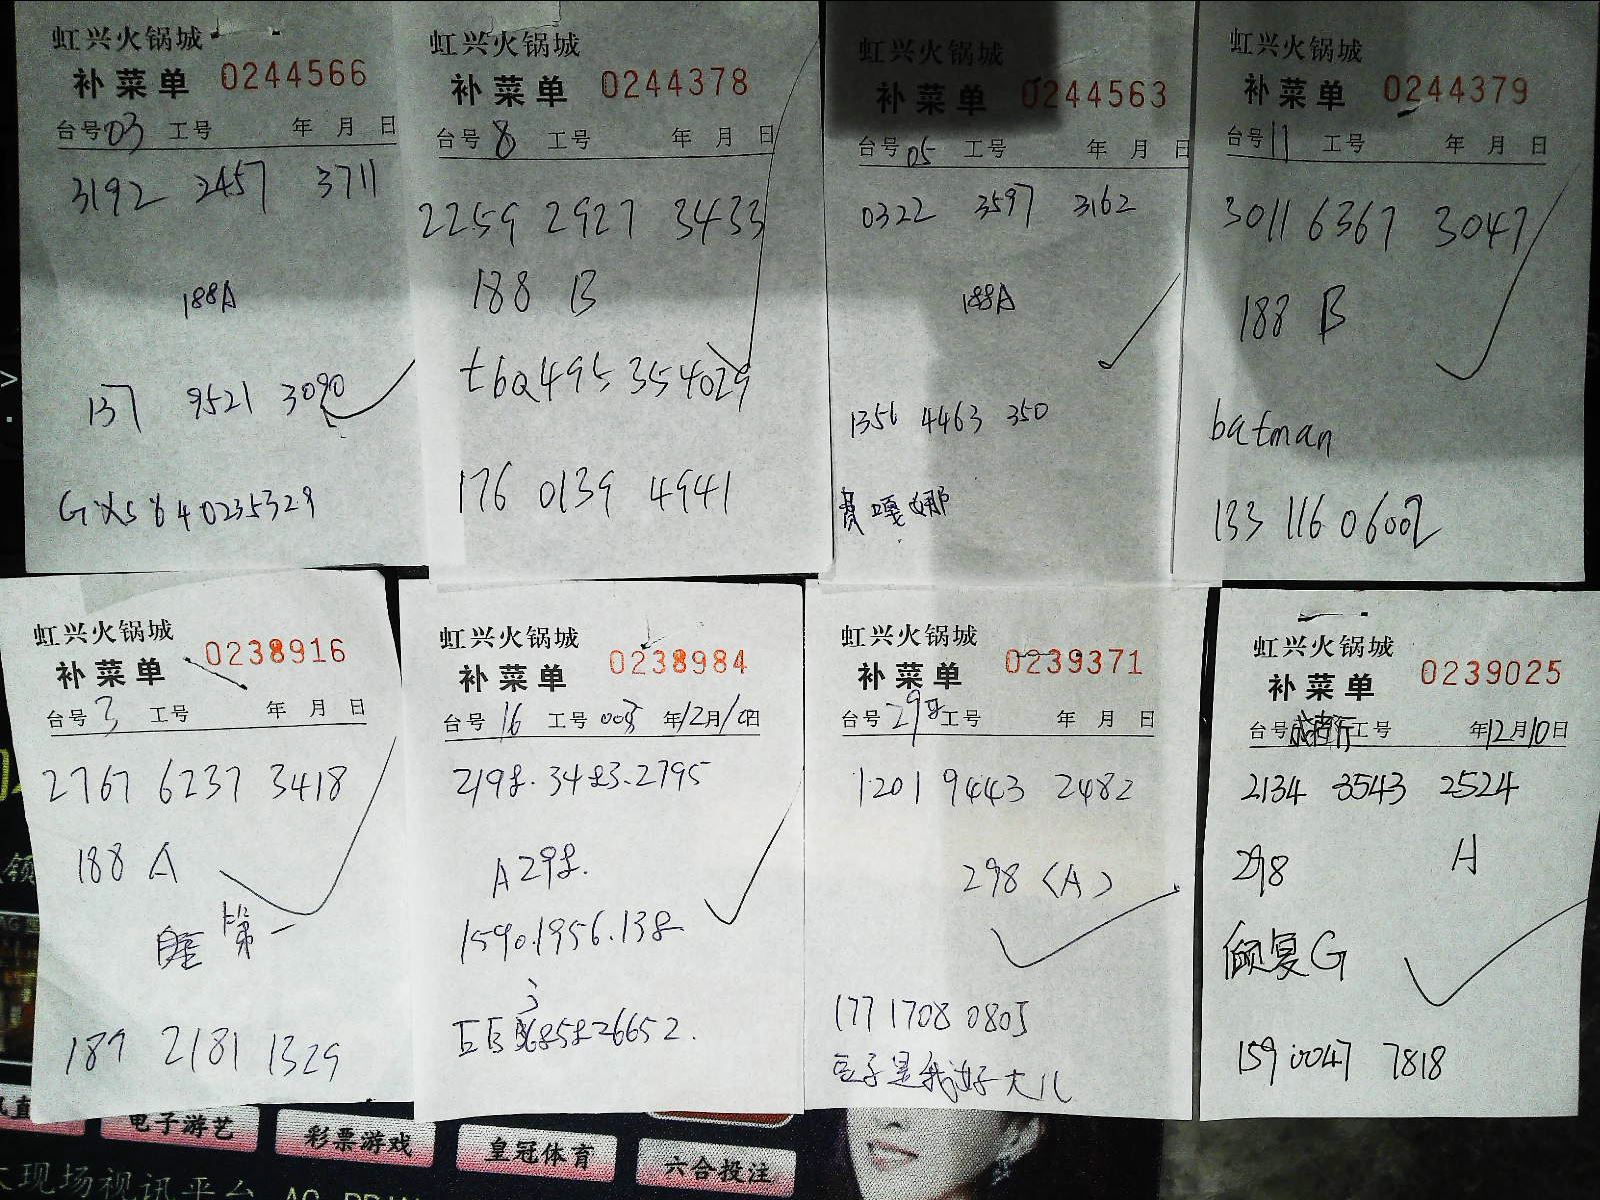 虹兴火锅城
补菜单 0244566
台号03 工号 年 月 日
3192 2457 3711
188A
137 9521 3090
虹兴火锅城
补菜单 0244378
台号8 工号 年 月 日
2259 2927 3433
188 B
tbQ495354029
176 0139 4941
虹兴火锅城
补菜单 0244563
台号05 工号 年 月 日
0322 3597 3162
188A
1356 4463 350
赛嘎娜
虹兴火锅城
补菜单 0244379
台号11 工号 年 月 日
3011 6367 3047
188 B
batman
133 116 06002
虹兴火锅城
补菜单 0238916
台号3 工号 年 月 日
2767 6237 3418
188 A
第一
187 2181 1329
虹兴火锅城
补菜单 0238984
台号16 工号 年12月10日
2198. 3483. 2795
A 298.
1590.1956.138
虹兴火锅城
补菜单 0239371
台号29 工号 年 月 日
1201 9443 2482
298 (A)
177 1708 0805
豆子是我好大儿
虹兴火锅城
补菜单 0239025
台号 工号 年12月10日
2134 3543 2524
298 A
倾复G
159 0047 7818
电子游艺
彩票游戏
皇冠体育
六合投注
现场视讯平台